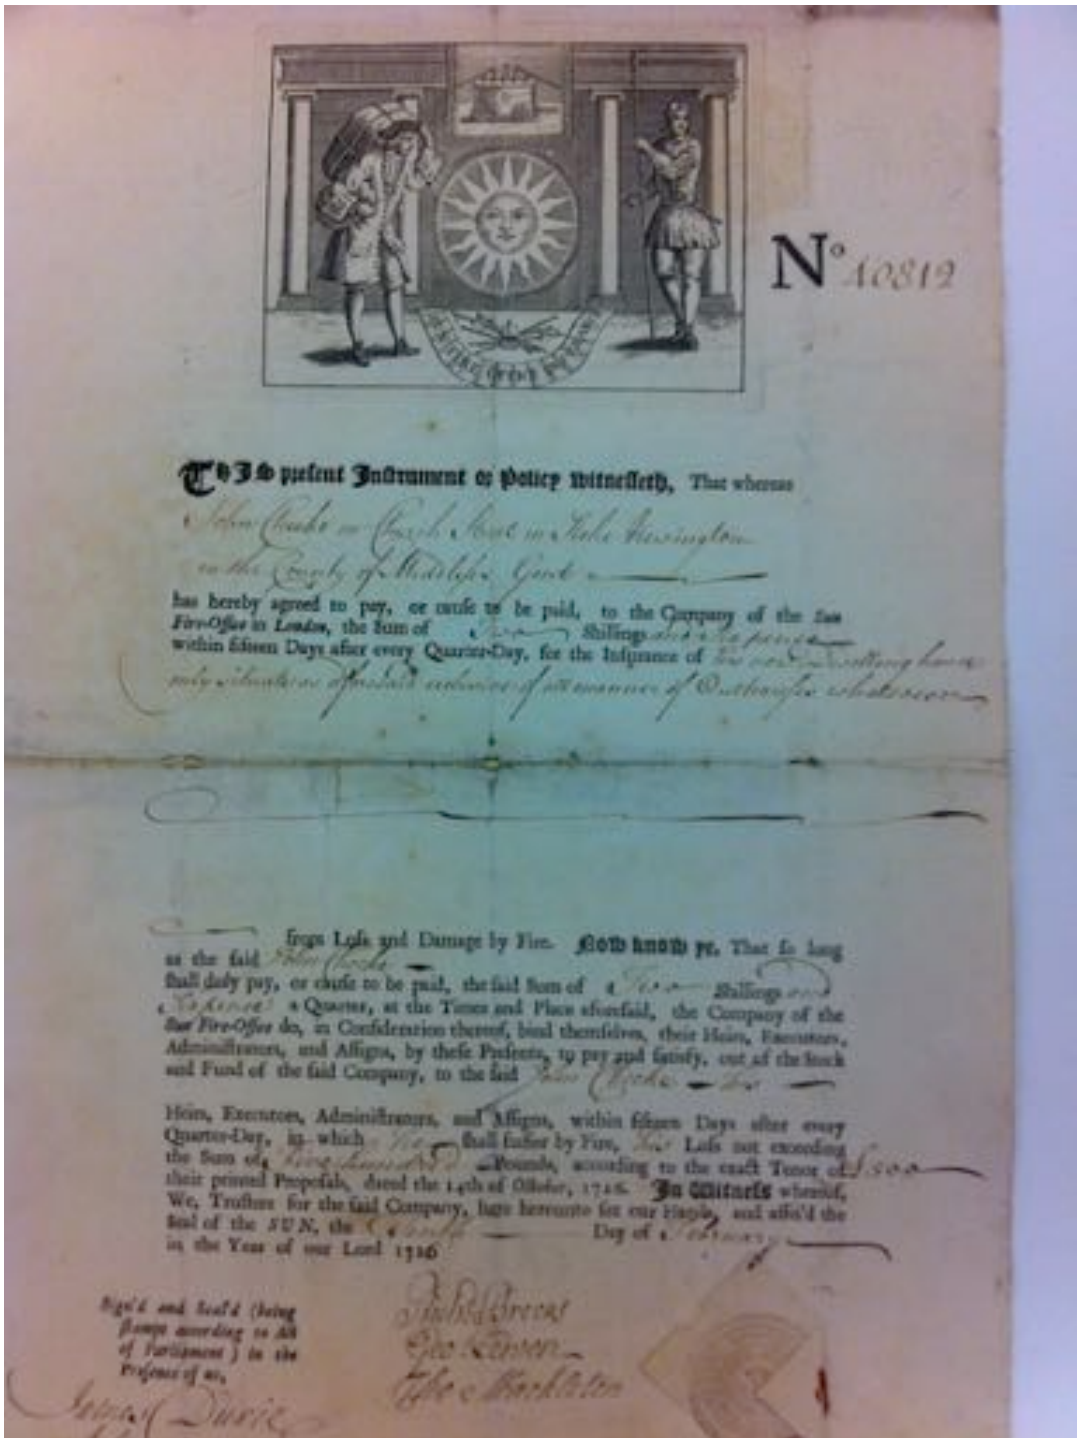 No 10819
THIS present Instrument or Policy witnesseth, That whereas
John in Church Street in Stoke Newington
in the County of Middlesex Gent
has hereby agreed to pay, or cause to be paid, to the Company of the Sun
Fire-Office in London, the Sum of Two Shillings and Sixpence
within fifteen Days after every Quarter-Day, for the Insurance of his now dwelling house
only situate as aforesaid exclusive of all manner of Outhouses whatsoever
from Loss and Damage by Fire. Now know ye, That so long
as the said John
shall duly pay, or cause to be paid, the said Sum of Two Shillings and
Sixpence a Quarter, at the Times and Place aforesaid, the Company of the
Sun Fire-Office do, in Consideration thereof, bind themselves, their Heirs, Executors,
Administrators, and Assigns, by these Presents, to pay and satisfy, out of the Stock
and Fund of the said Company, to the said John his
Heirs, Executors, Administrators, and Assigns, within fifteen Days after every
Quarter-Day, in which he shall suffer by Fire, his Loss not exceeding
the Sum of five hundred Pounds, according to the exact Tenor of £500
their printed Proposals, dated the 14th of October, 1726. In Witness whereof,
We, Trustees for the said Company, have hereunto set our Hands, and affix'd the
Seal of the SUN, the Day of February
in the Year of our Lord 1726
Sign'd and Seal'd (being
stampt according to Act
of Parliament) in the
Presence of us,
Geo
Tho
James